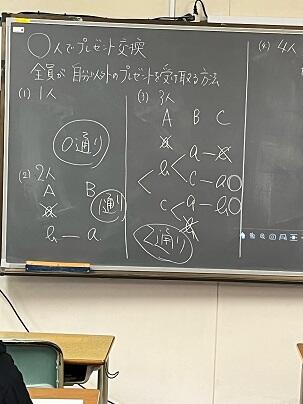 ○人でプレゼント交換
全員が自分以外のプレゼントを受け取る方法
(1) 1人
0通り
(2) 2人
A B
a
b — a
1通り
(3) 3人
A B C
a
b < a — c
c — a ○
c < a — b ○
b
2通り
(4) 4人